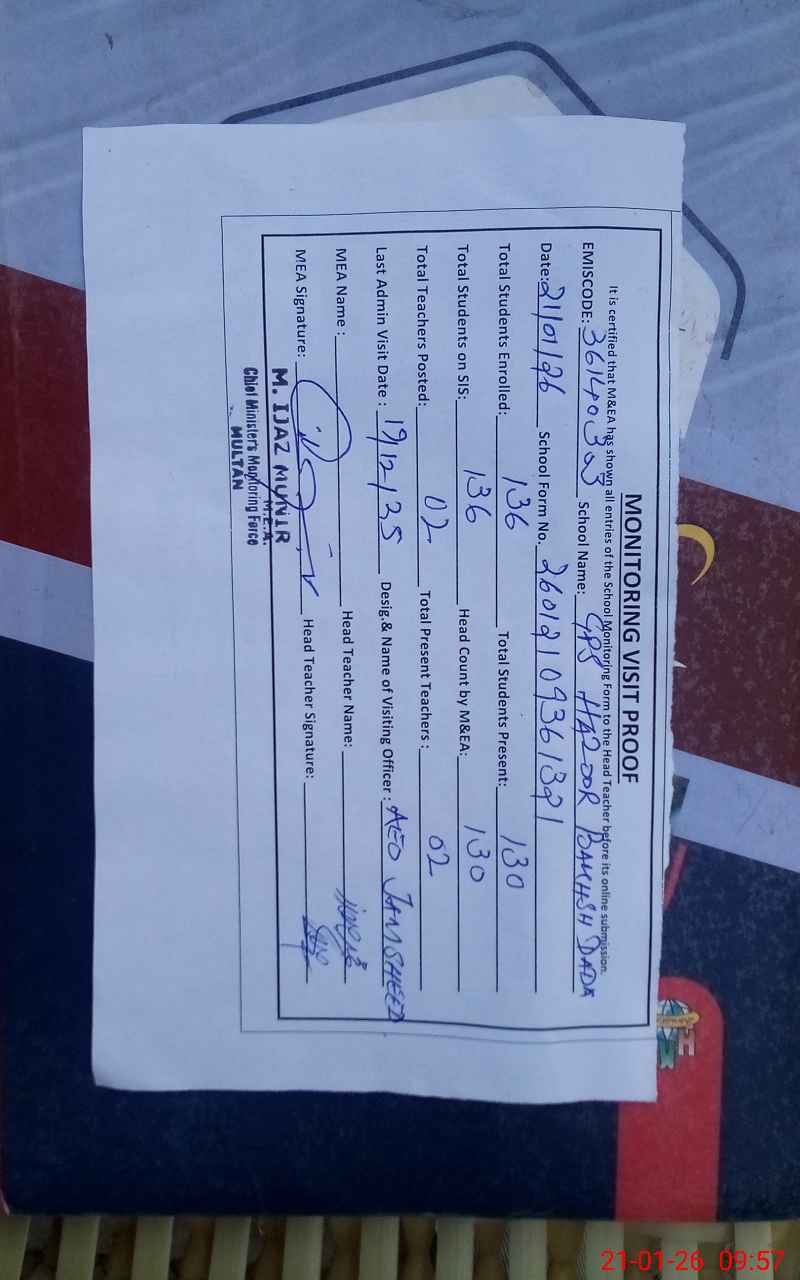 MONITORING VISIT PROOF
It is certified that M&EA has shown all entries of the School Monitoring Form to the Head Teacher before its online submission.
EMISCODE: 36140323 School Name: GPS HAZOOR BAKHSH DADA
Date: 21/01/26 School Form No. 26012109361321
Total Students Enrolled: 136 Total Students Present: 130
Total Students on SIS: 136 Head Count by M&EA: 130
Total Teachers Posted: 02 Total Present Teachers : 02
Last Admin Visit Date : 19/12/35 Desig.& Name of Visiting Officer : AEO JAMSHEED
MEA Name : Head Teacher Name:
MEA Signature: Head Teacher Signature:
M. IJAZ MUNIR
M.E.A.
Chief Minister's Monitoring Force
MULTAN
21-01-26 09:57